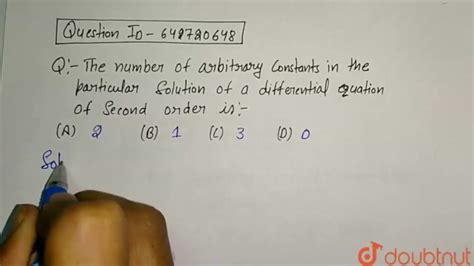 Question ID - 642720648
Q:- The number of arbitrary Constants in the
particular Solution of a differential equation
of Second order is:-
(A) 2 (B) 1 (C) 3 (D) 0
Sol
doubtnut